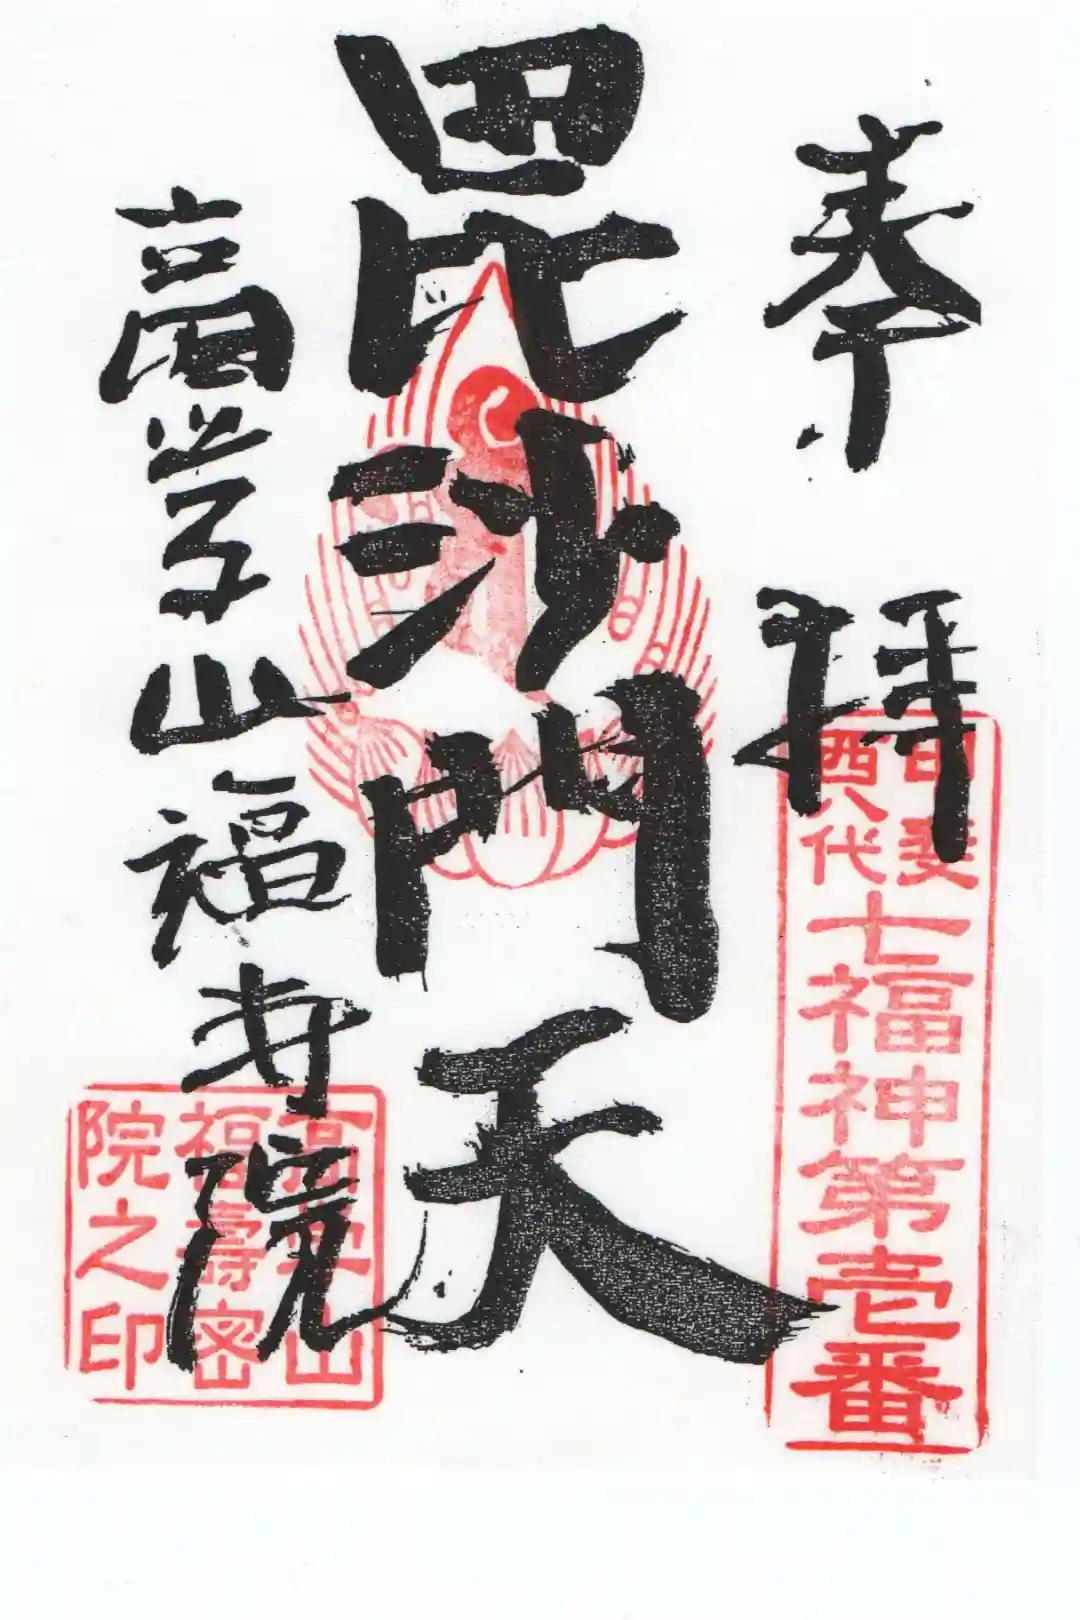 奉拝
甲斐
西八代
七福神第壱番
毘沙門天
高学山福寿院
高學山
福壽密
院之印